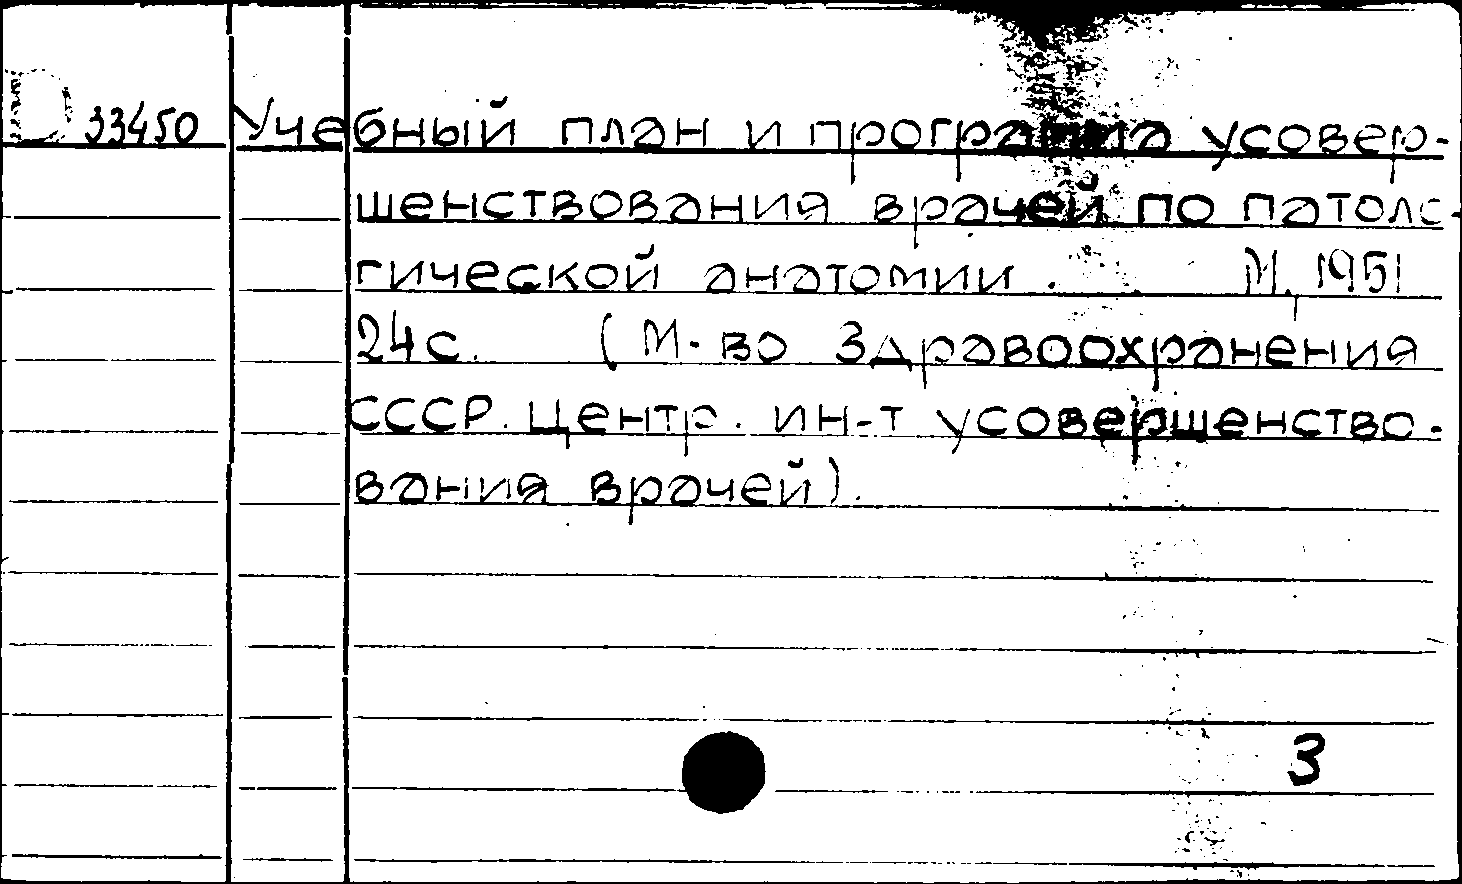 33450 Учебный план и программа усовер-
шенствования врачей по патоло-
гической анатомии. М, 1951
24с. (М-во Здравоохранения
СССР. Центр. ин-т усовершенство-
вания врачей).
3